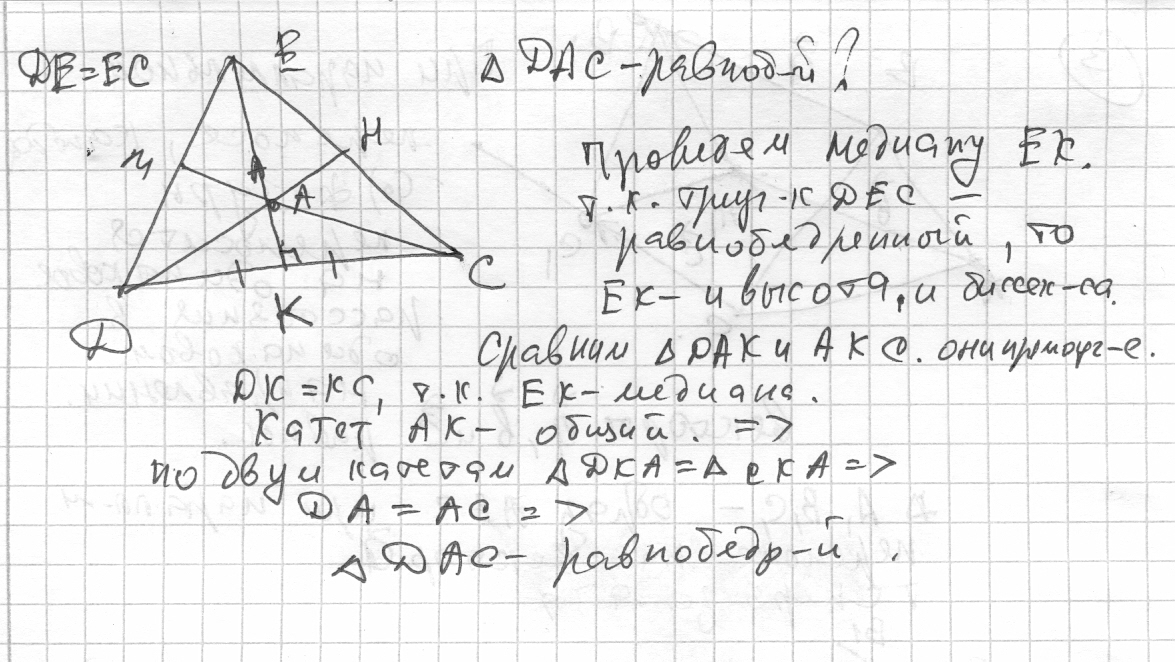 DE=EC
E
△ DAC-равноб-й?
M
H
A
A
C
K
D
Проведем медиану EK.
т.к. треуг-к DEC -
равнобедренный, то
EK- и высота, и биссек-са.
Сравним △DAK и AKC. они прямоуг-е.
DK=KC, т.к. EK-медиана.
Катет AK- общий. =>
по двум катетам △DKA=△CKA=>
DA = AC = >
△ DAC- равнобедр-й.